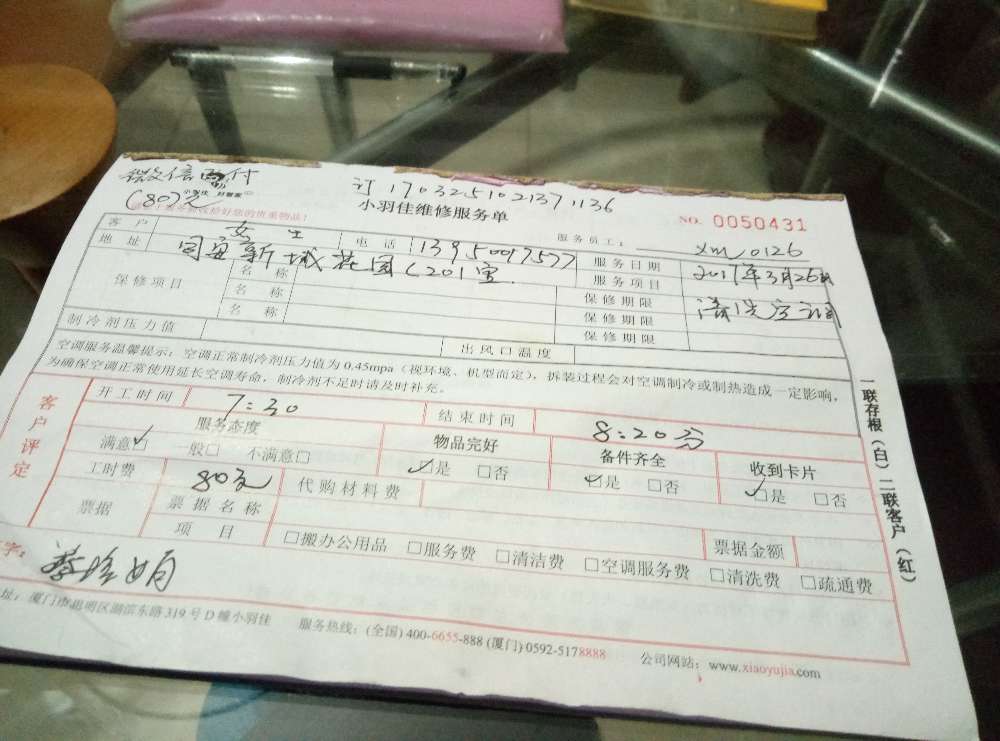 微信已付 订 170325102137 1136
(80元 小羽佳 好管家
小羽佳维修服务单 NO. 0050431
服务员工: xm 0126
客户 女士 电话 13950017577 服务日期 2017年3月26日
地址 同安新城花园(201室 服务项目 清洗空调
保修项目 名称 保修期限
名称 保修期限
名称 保修期限
制冷剂压力值 出风口温度
空调服务温馨提示: 空调正常制冷剂压力值为0.45mpa (视环境、机型而定), 拆装过程会对空调制冷或制热造成一定影响,
为确保空调正常使用延长空调寿命, 制冷剂不足时请及时补充。
客户评定
开工时间 7:30 结束时间 8:20分
服务态度 物品完好 备件齐全 收到卡片
满意☑ 般□ 不满意□ ☑是 □否 ☑是 □否 ☑是 □否
工时费 80元 代购材料费
票据 票据名称 票据金额
项目 □搬办公用品 □服务费 □清洁费 □空调服务费 □清洗费 □疏通费
字:
址: 厦门市思明区湖滨东路319号D幢小羽佳 服务热线: (全国) 400-6655-888 (厦门) 0592-5178888 公司网站: www.xiaoyujia.com
一联存根(白) 二联客户(红)